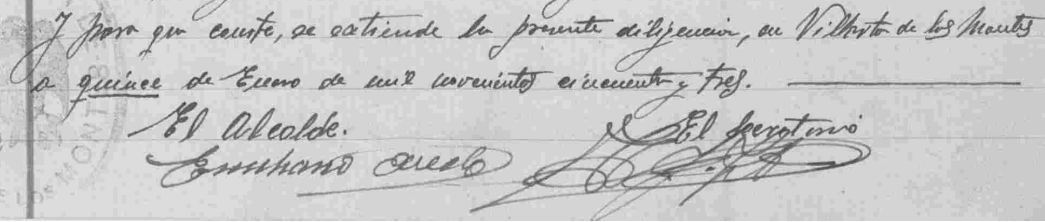 Y para que conste, se extiende la presente diligencia, en Villarta de los Montes
a quince de Enero de mil novecientos cincuenta y tres.
El Alcalde. El Secretario
Emiliano
MONTES